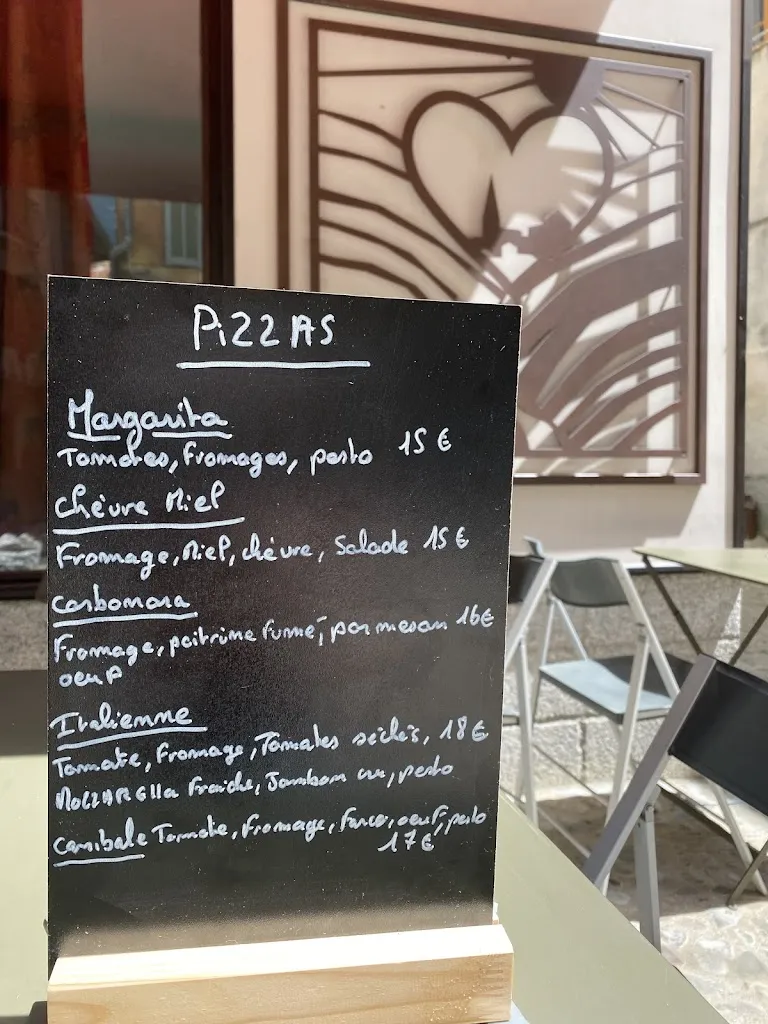 PiZZAS
Margarita
Tomates, Fromages, pesto 15€
Chèvre Miel
Fromage, Miel, chèvre, Salade 15€
Carbonara
Fromage, poitrine fumé, parmesan 16€
oeuf
Italienne
Tomate, Fromage, Tomates séchés, 18€
MOZZARElla fraiche, Jambon cru, pesto
Canibale Tomate, Fromage, Farce, oeuf, pesto
17€